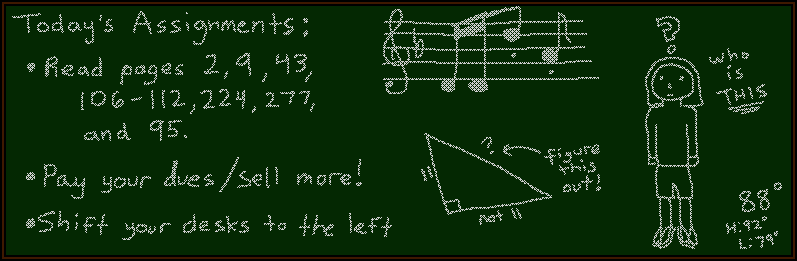 Today's Assignments:
• Read pages 2, 9, 43,
106-112, 224, 277,
and 95.
• Pay your dues/sell more!
• Shift your desks to the left
?
figure
this
out!
11
not 11
?
who
is
THIS
88°
H: 92°
L: 79°